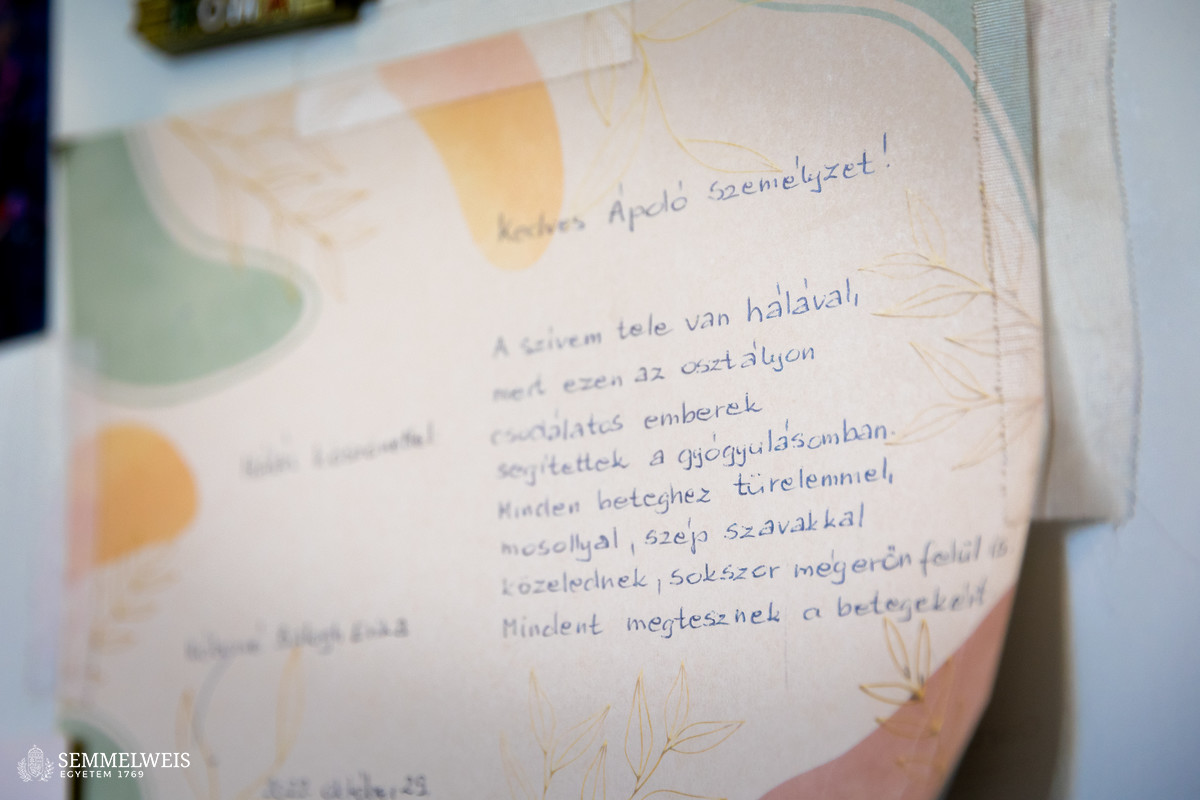 Kedves Ápoló személyzet!
A szívem tele van hálával,
mert ezen az osztályon
csudálatos emberek
segítettek a gyógyulásomban.
Minden beteghez türelemmel,
mosollyal, szép szavakkal
közelednek, sokszor mégerőn felül is.
Mindent megtesznek a betegekért
SEMMELWEIS
EGYETEM 1769